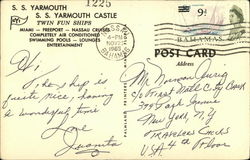 1225
S. S. YARMOUTH
S. S. YARMOUTH CASTLE
TWIN FUN SHIPS
MIAMI - FREEPORT - NASSAU CRUISES
COMPLETELY AIR CONDITIONED
SWIMMING POOLS - LOUNGES
ENTERTAINMENT
Hi,
The ship is
quite nice, having
a wonderful time
Juanita
9d
BAHAMAS
POST CARD
Address
Mr. Norman
c/o First Nat'l City Bank
399 Park Avenue
New York, N.Y.
Travelers Checks
U.S.A. 4th Floor